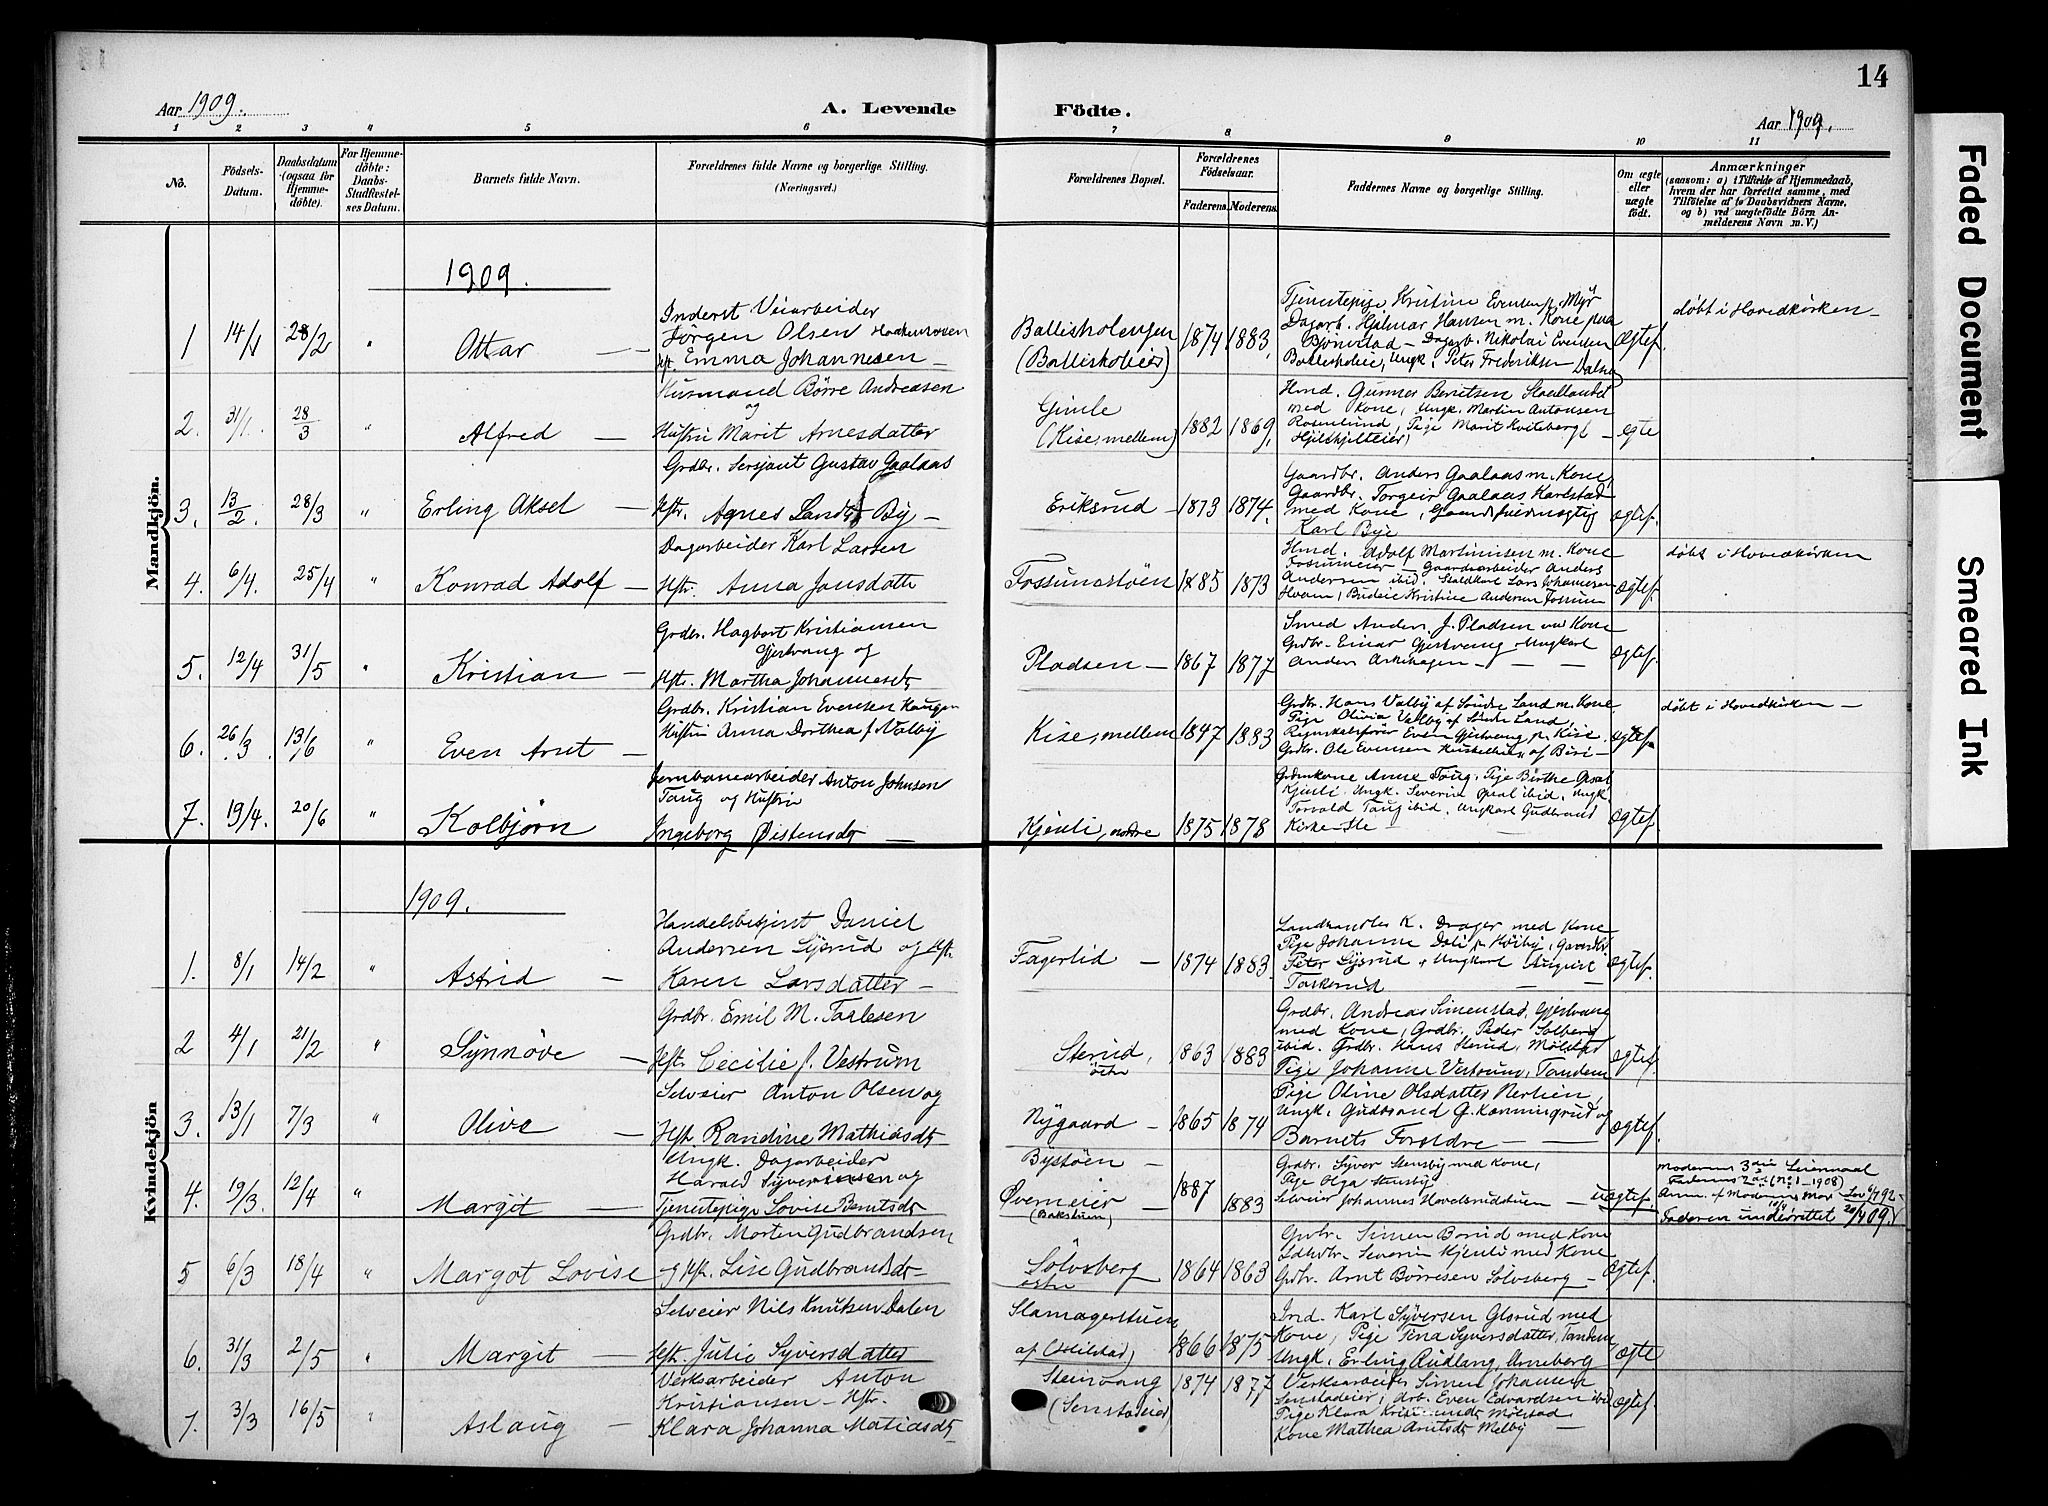 14
Aar 1909.
A. Levende Födte.
Aar 1909.
1 2 3 4 5 6 7 8 9 10 11
No.
Födsels-Datum.
Daabsdatum (ogsaa for Hjemme-döbte).
For Hjemme-döbte: Daabs-Stadfæstel-ses Datum.
Barnets fulde Navn.
Forældrenes fulde Navne og borgerlige Stilling.
(Næringsvei.)
Forældrenes Bopæl.
Forældrenes Födselsaar.
Faderens. Moderens.
Faddernes Navne og borgerlige Stilling.
Om ægte eller uægte födt.
Anmærkninger
(saasom: a) i Tilfælde af Hjemmedaab,
hvem der har forrettet samme, med
Tilföielse af to Daabsvidners Navne,
og b) ved uægtefödte Börn An-
melderens Navn m. V.)
Mandkjön.
1909.
1 14/1 28/2 " Ottar —
Inderst Veiarbeider
Jørgen Olsen
Hst. Emma Johannesen —
Ballisholengen
(Ballisholeie)
1874 1883.
Tjenestepige Kristine Evensen, Myr
Dagarb. Hjalmar Hansen m. Kone paa
Bjørnstad — Dagarb. Nikolai Evensen
Ballisholeie, Ungk. Peter Frederiksen Dalseg
Ægtef.
døbt i Hovedkirken —
2. 31/1. 28/3 " Alfred —
Husmand Børre Andreasen
og
Hustru Marit Arnesdatter
Gimle
(Kise, mellem)
1882 1869,
Hmd. Gunner Berntsen
med Kone, Ungk. Martin Antonsen
Rosenlund, Pige Marit Kviteberg
—ægte
3. 13/2. 28/3 " Erling Aksel —
Grdbr. Sersjant Gustav Gaalaas
Hst. Agnes By —
Eriksrud —
1873 1874.
Gaardbr. Anders Gaalaas m. Kone,
Gaardbr. Torgeir Gaalaas Harlstad
med Kone, Gaardsfuldmægtig
Karl Bye
ægtef.
4. 6/4. 25/4 " Konrad Adolf —
Dagarbeider Karl Larsen
Hst. Anna Jansdatte
Fossumstøen
1885 1873
Hmd. Adolf Martinusen m. Kone
Fossumeier — Gaardsarbeider Anders
Andersen ibid. Staldkarl Lars Johannesen
Hvam, Budeie Kristine Andersen Fossum
ægtef.
døbt i Hovedkirken
5. 12/4 31/5 " Kristian —
Grdbr. Hagbart Kristiansen
Gjestvang og
Hst. Martha Johannesdt.
Pladsen —
1867 1877
Smed Anders J. Pladsen m. Kone
Grdbr. Einar Gjestvang — Ungkarl
Anders — — —
ægtef.
6. 26/3. 13/6 " Even Arnt —
Grdbr. Kristian Evensen Haugen
Hustru Anna Dorthea f. Valby
Kise, mellem
1847 1883
Grdbr. Hans Valby af Søndre Land m. Kone
Pige Olivia Valby af Søndre Land,
Regnskabsfører Even Gjestvang pr. Kise.
Grdbr. Ole Evensen af Biri —
ægtef.
døbt i Hovedkirken —
7. 19/4. 20/6 " Kolbjørn
Jernbanearbeider Anton Johnsen
Taug og Hustru
Ingeborg Øistensdt. —
Kjenli, nordre
1875 1878
Grdmkone Anne Taug, Pige Birthe Opsal
Kjenli, Ungk. Severin Opsal ibid. Ungk
Torvald Taug ibid, Ungkarl Gudbrand
Kirke-Ile — —
Ægtef.
Kvindekjön
1909.
1. 8/1 14/2 " Astrid —
Handelsbetjent Daniel
Andersen Lysrud og Hst.
Karen Larsdatter —
Fagerlid —
1874 1883.
Landhandler K. Drager med Kone
Pige Johanne Dæli, Gaardbr.
Peter Lysrud, Ungkarl August
Taskerud — —
ægtef.
2 4/1 21/2 " Synnøve —
Grdbr. Emil M. Taalesen
Hst. Cecilie f. Vestrum
Sterud,
østre
1863 1883
Grdbr. Andreas Simenstad, Gjestvang
med Kone, Grdbr. Peder Solberg
ibid. Grdbr. Hans Sterud, Mølstad
Pige Johanne Vestrum, Tandem
ægtef.
3. 13/1 7/3 " Olive —
Selveier Anton Olsen og
Hst. Randine Mathiasdt.
Nygaard —
1865 1874
Pige Oline Olsdatter Nerlien,
Ungk. Gudbrand G. Kammingrud og
Barnets Forældre — —
ægtef.
4. 19/3. 12/4 " Margit —
Ungk. Dagarbeider
Harald Syversinsen og
Tjenestepige Lovise Berntsdt.
Bystøen —
Øvermeier
(Bakstuen)
1887 1883
Grdbr. Syver Stensby med Kone,
Pige Olga Stensby
Selveier Johannes Hovelsrudstuen —
uægtef.
Moderens 3die Leiermaal
Faderens 2det (No. 1 — 1908)
Anm. af Moderens Mor Lov 6/7 92 —
Faderen underrettet 20/4 09.
5 6/3 18/4 " Margot Lovise
Grdbr. Morten Gudbrandsen
og Hst. Lise Gudbrandsdt.
Sölvsberg
østre
1864 1863
Grdbr. Simen Borud med Kone
Ldhdbr. Severin Kjenli med Kone
Grdbr. Arnt Børresen Sölvsberg —
Ægtef.
6. 31/3 2/5 " Margit —
Selveier Nils Knutsen Dalen
Hst. Julie Syversdatter
Slamagerstuen
af (Hilstad)
1866 1875
Ind. Karl Syversen Glorud med
Kone, Pige Tina Syversdatter, Tandem
Ungk. Erling Rudlang, Arneberg
ægte
7. 3/3 16/5 " Aslaug —
Verksarbeider Anton
Kristiansen — Hst.
Klara Johanna Matiasdt.
Steinvang
(Senstadeie)
1874 1877
Verksarbeider Simen Johansen
Senstadeier, Arb. Even Edvardsen ibid
Pige Klara Kristiansdt. Mølstad
Kone Mathea Arntsdt. Melby —
ægtef.
Faded Document
Smeared Ink